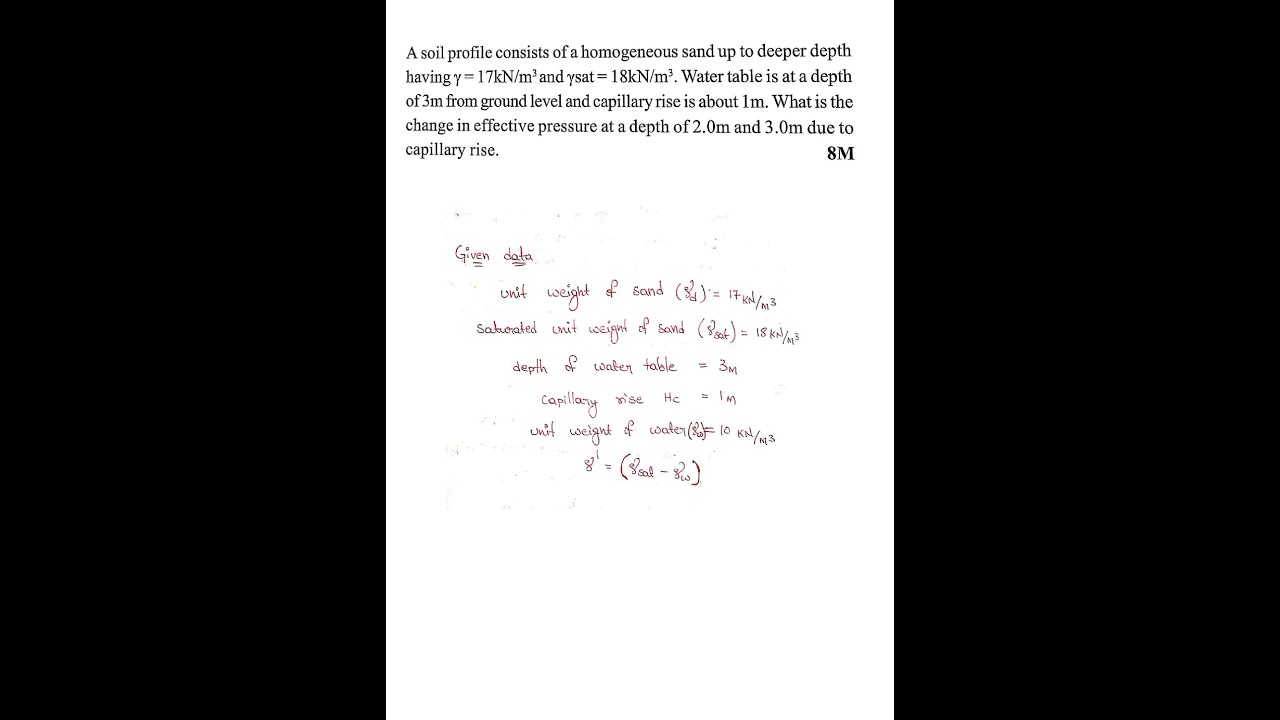 A soil profile consists of a homogeneous sand up to deeper depth
having γ = 17kN/m³ and γsat = 18kN/m³. Water table is at a depth
of 3m from ground level and capillary rise is about 1m. What is the
change in effective pressure at a depth of 2.0m and 3.0m due to
capillary rise. 8M
Given data
unit weight of sand (γd) = 17 KN/M3
saturated unit weight of sand (γsat) = 18 KN/M3
depth of water table = 3M
capillary rise Hc = 1M
unit weight of water (γω) = 10 KN/M3
γ' = (γsat - γω)